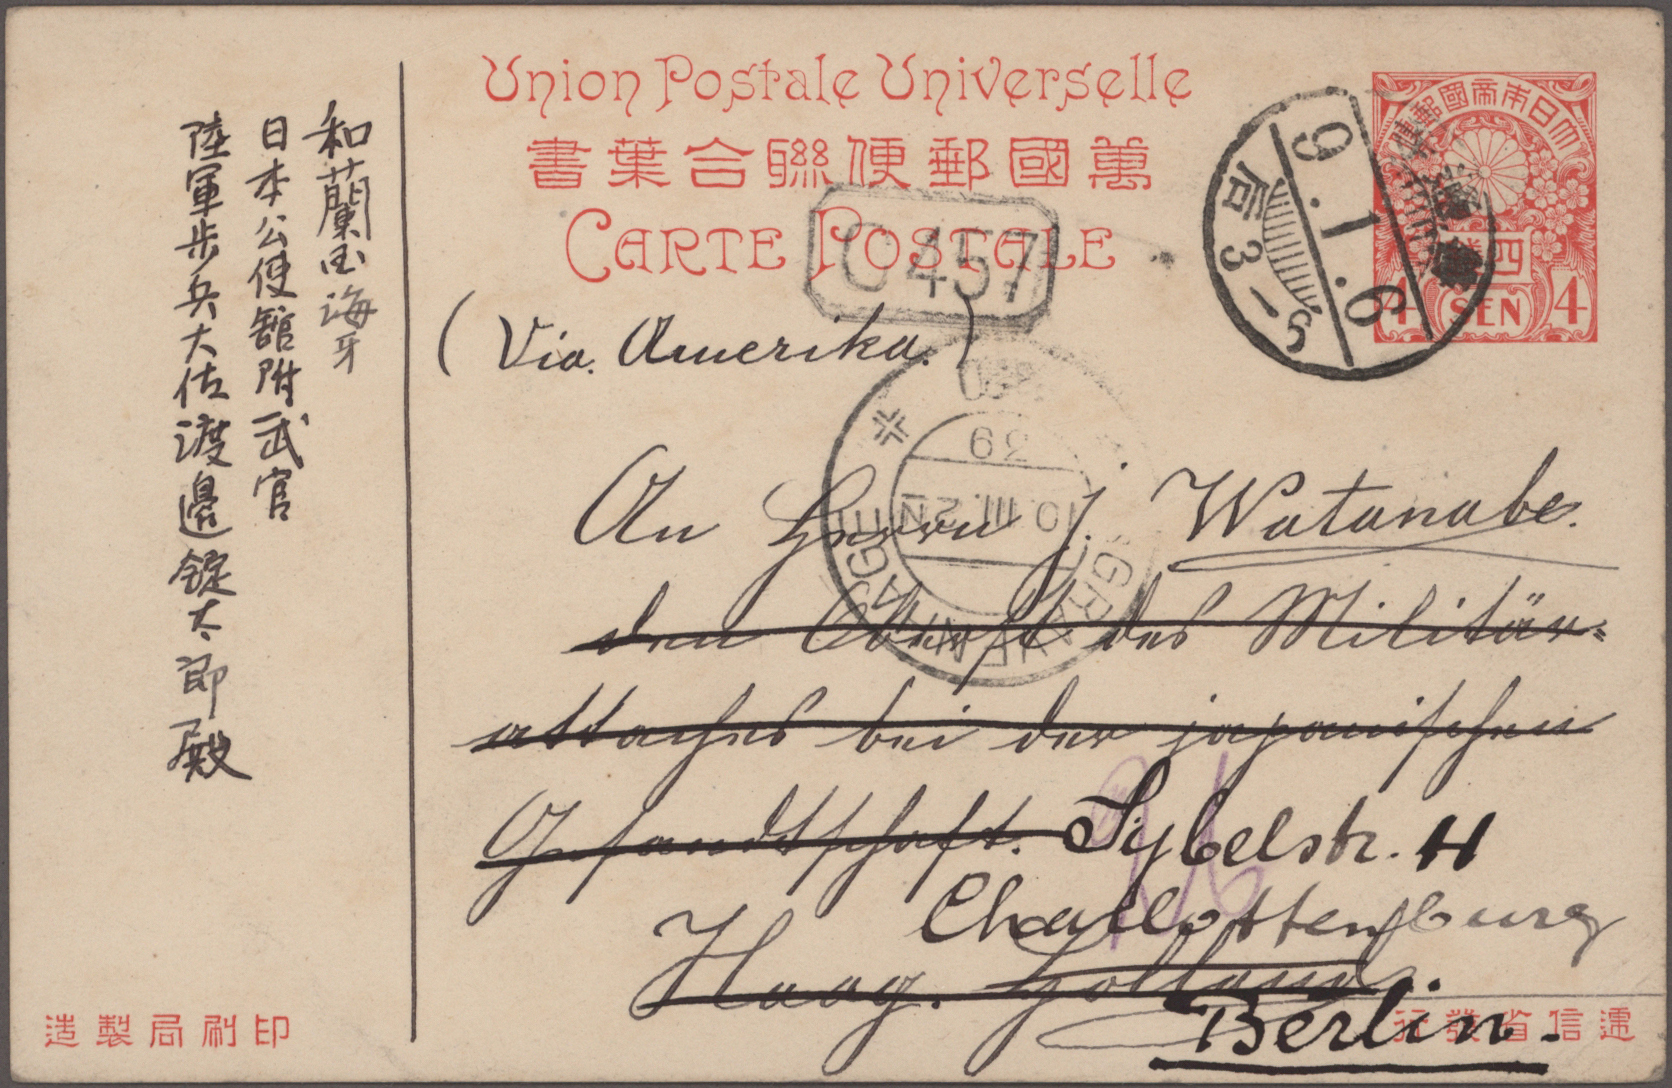 Union Postale Universelle
書葉合聯便郵國萬
CARTE POSTALE
便郵國帝本日大
四
4 SEN 4
9.1.6
后 3-5
C 457
(Via. Amerika.)
'S GRAVENHAGE
10.III.2N
An Herrn J. Watanabe.
den Oberst des Militär-
attachés bei der japanischen
Gesandtschaft. Sybelstr. 11
Charlottenburg
Haag. Holland.
Berlin.
和蘭国海牙
日本公使舘附武官
陸軍歩兵大佐渡邊錠太郎殿
造製局刷印
行發省信遞